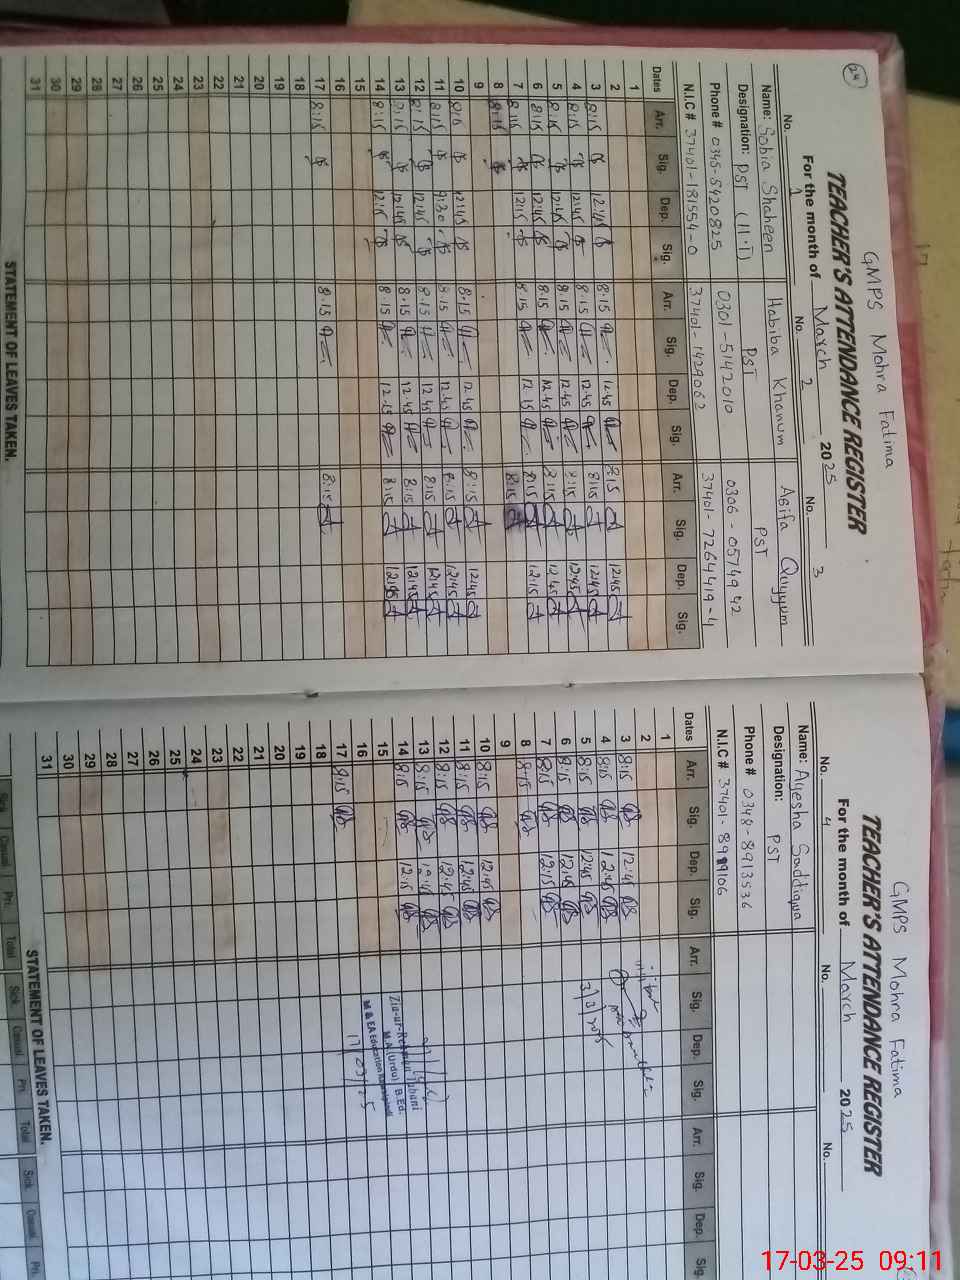 24
GMPS Mohra Fatima
TEACHER'S ATTENDANCE REGISTER
For the month of March 2025
No. 1 No. 2 No. 3
Name: Sobia Shaheen Habiba Khanum Asifa Quyyum
Designation: PST (H.T) PST PST
Phone # 0345-8420825 0301-5142010 0306-0574942
N.I.C # 37401-181554-0 37401-1429062 37401-7264419-4
Dates Arr. Sig. Dep. Sig. Arr. Sig. Dep. Sig. Arr. Sig. Dep. Sig.
1
2 12.45 8:15 12:45
3 8:15 12:45 8.15 12.45 8:15 12:45
4 8:15 12:45 8.15 12.45 8:15 12:45
5 8:15 12:45 8.15 12.45 8:15 12:45
6 8:15 12:45 8.15 12.45 8:15 12:15
7 8:15 12:15 8.15 12.15 8:15
8 8:15
9
10 8:15 12:45 8.15 12.45 8:15 12:45
11 8:15 9:30 8.15 12.45 8:15 12:45
12 8:15 12:45 8.15 12.45 8:15 12:45
13 8:15 12:45 8.15 12.45 8:15 12:45
14 8:15 12:15 8.15 12.15 8:15 12:15
15
16
17 8:15 8.15 8:15
18
19
20
21
22
23
24
25
26
27
28
29
30
31
STATEMENT OF LEAVES TAKEN.
GMPS Mohra Fatima
TEACHER'S ATTENDANCE REGISTER
For the month of March 2025
No. 4 No. No.
Name: Ayesha Saddiqua
Designation: PST
Phone # 0348-8913536
N.I.C # 37401-8999106
Dates Arr. Sig. Dep. Sig. Arr. Sig. Dep. Sig. Arr. Sig. Dep. Sig.
1
2
3 8:15 12:45
4 8:15 12:45
5 8:15 12:45
6 8:15 12:45
7 8:15 12:15
8 8:15
9
10 8:15 12:45
11 8:15 12:45
12 8:15 12:45
13 8:15 12:45
14 8:15 12:15
15
16
17 8:15
18
19
20
21
22
23
24
25
26
27
28
29
30
31
3/3/2025
Zia-ur-Rehman
M.A (Urdu) B.Ed.
M & EA Education
17/03/25
STATEMENT OF LEAVES TAKEN.
Sick Casual Pri. Total Sick Casual Pri. Total Sick Casual Pri.
17-03-25 09:11